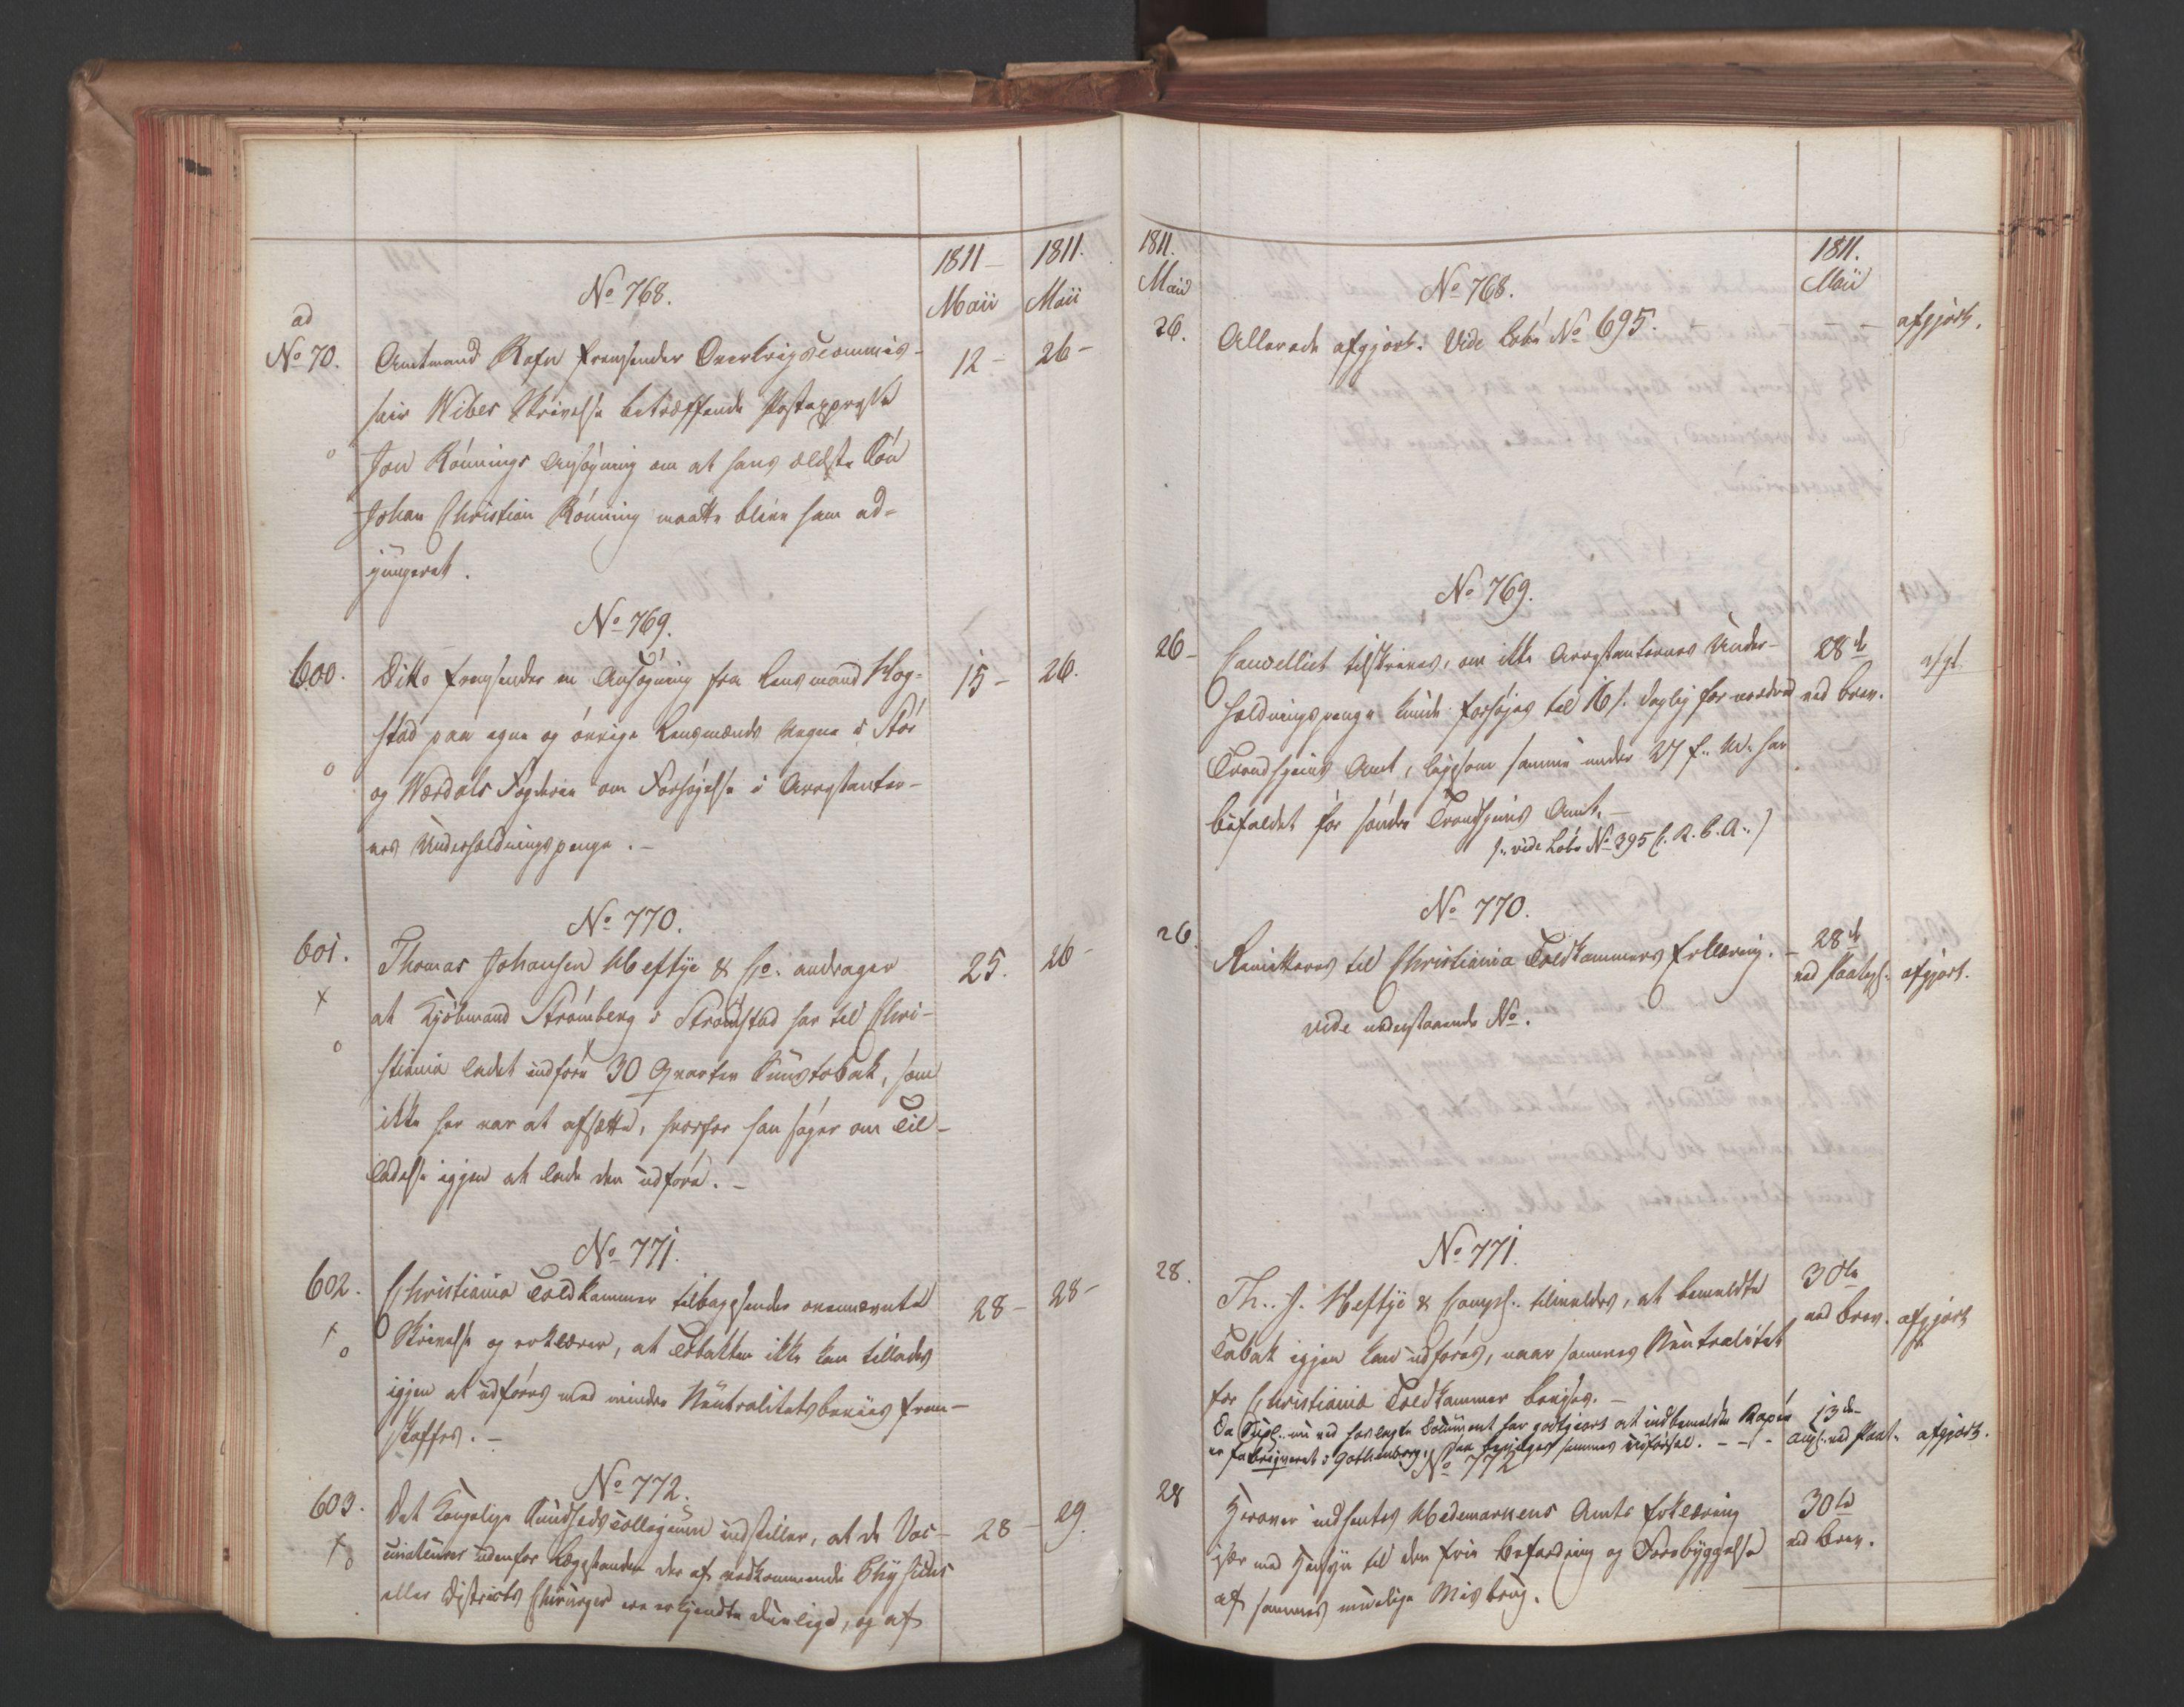 1811 - 1811.
Maii Maii
No 768.
ad
No 70. Amtmand Rafn fremsender Overkrigscommis- 12 - 26 -
sair Wibes Skrivelse betræffende Postexpeditr
Jon Rönnings Ansøgning om at hans ældste Sön
Johan Christian Rönning maatte blive ham ad-
jungeret.
No 769.
600. Ditto fremsender en Ansögning fra Lensmand Hog- 15 - 26.
stad paa egne og övrige Lensmænds Vegne i Stör
og Værdals Fogderie om Forhöjelse i Arrestanter-
nes Underholdningspenge. -
No 770.
601. Thomas Johansen Heftÿe & Co. andrager 25. 26 -
at Kjöbmand Strömberg i Strömstad har til Chri-
stiania ladet indföre 30 Qvarter Snustobak, som
ikke her var at afsætte, hvorfor han söger om Til-
ladelse igjen at lade den udföre. -
No 771.
602. Christiania Toldkammer tilbagesender ovennævnte 28 - 28 -
Skrivelse og erklærer, at Tobakken ikke kan tillades
igjen at udföres med mindre Neutralitetsbeviis frem-
skaffes. -
No 772.
603. Det Kongelige Sundhedscollegium indstiller, at de Vac- 28 - 29.
cinateurer udenfor Lægestanden der af vedkommende Physicus
eller Districts Chirurger ere erkjendte duelige, og af
1811. 1811.
Maii Maii
No 768.
26. Allerede afgjort. Vide Løbe No 695. - afgjort.
No 769.
26 - Cancelliet tilskrives, om ikke Arrestanternes Under- 28de afgt
holdningspenge kunde forhöjes til 16 s. daglig for nordre ved Brev.
Trondhjems Amt, ligesom samme under 27 f. M. har
befaldet for söndre Trondhjems Amt. -
(: vide Löbe No 395 C. R. C. A. :)
No 770.
26. Remitteres til Christiania Toldkammers Erklæring. - 28de
ved Paategn. afgjort.
vide nedenstaaende No.
No 771.
28. Th. J. Heftÿe & Comp. tilmeldes, at bemeldte 30te
Tobak igjen kan udföres, naar sammes Neutralitet ved Brev. afgjort
for Christiania Toldkammer bevises. -
Da Supl. nu ved forlagte Document har godtgjort at indbemeldte Rapée 13de
er fabriqueret i Gothenborg, saa bevilges sammes Udförsel. - - ved Paat. afgjort.
No 772
28 Herover indhentes Hedemarkens Amts Erklæring 30te
især med Hensyn til den frie Befordring og Forebyggelse ved Brev.
af sammes muelige Misbrug.